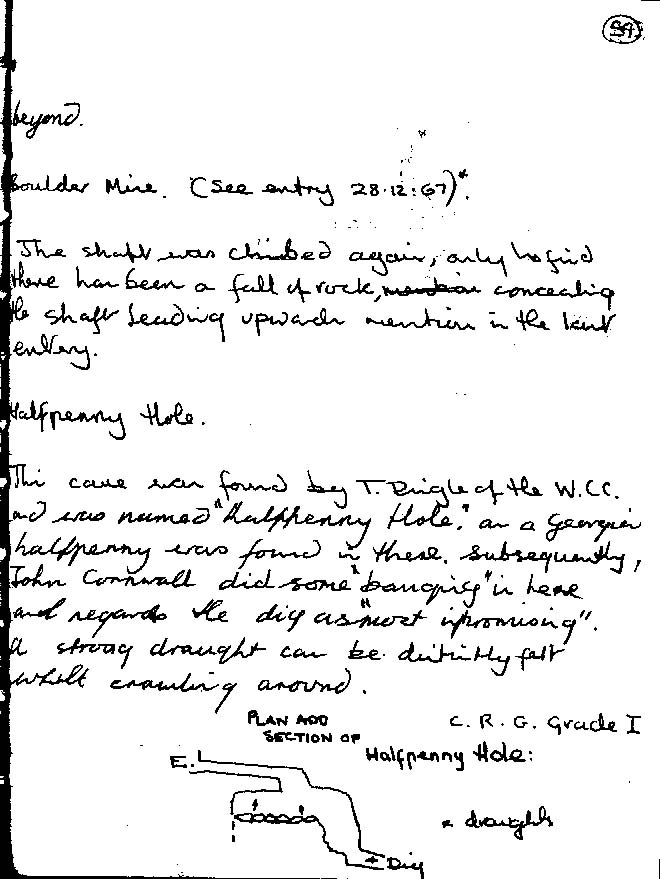 59
beyond.
Boulder Mine. (See entry 28:12:67)*.
The shaft was climbed again, only to find
there has been a fall of rock, concealing
the shaft leading upwards mention in the last
entry.
Halfpenny Hole.
This cave was found by T. Dingle of the W.C.C.
and was named "Halfpenny Hole." as a Georgian
halfpenny was found in there. Subsequently,
John Cornwall did some "banging" in here
and regards the dig as "most unpromising".
A strong draught can be distinctly felt
whilst crawling around.
PLAN AND
SECTION OF
C. R. G. Grade I
Halfpenny Hole:
E.
draughts
Dig